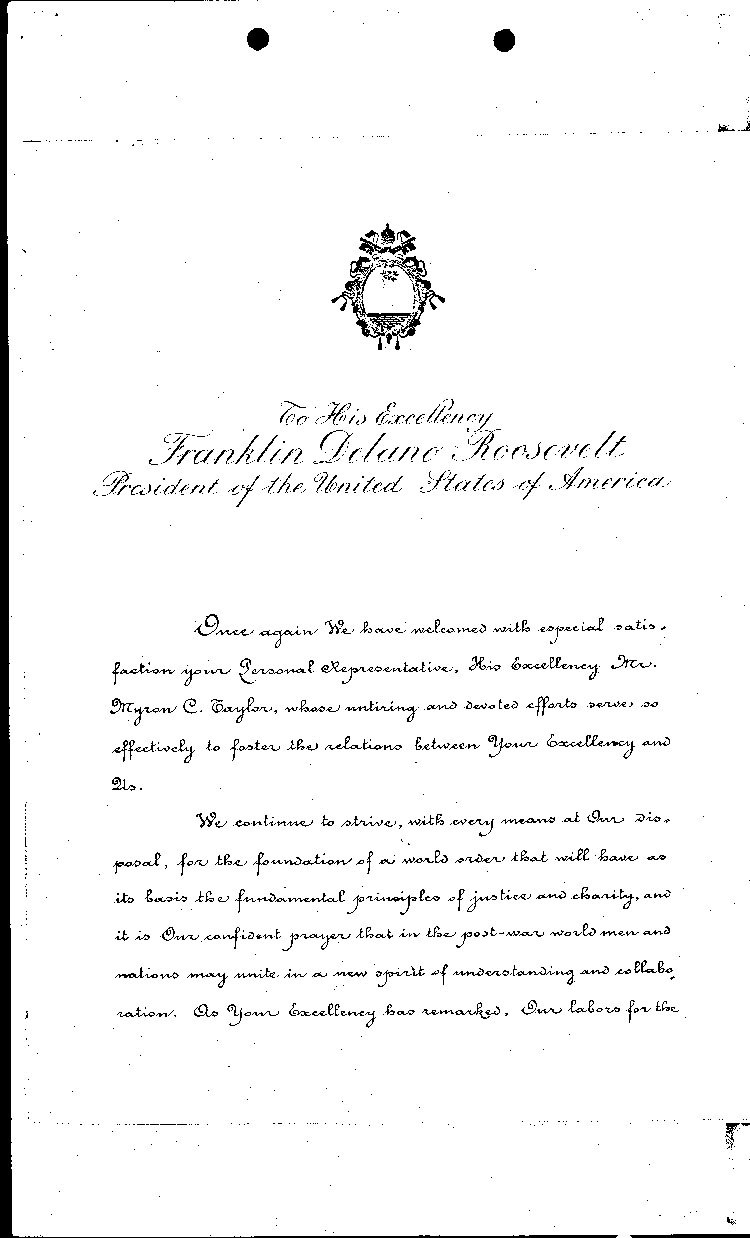 To His Excellency
Franklin Delano Roosevelt
President of the United States of America
Once again We have welcomed with especial satis-
faction your Personal Representative, His Excellency Mr.
Myron C. Taylor, whose untiring and devoted efforts serve so
effectively to foster the relations between Your Excellency and
Us.
We continue to strive, with every means at Our dis-
posal, for the foundation of a world order that will have as
its basis the fundamental principles of justice and charity, and
it is Our confident prayer that in the post-war world men and
nations may unite in a new spirit of understanding and collabo-
ration. As Your Excellency has remarked, Our labors for the